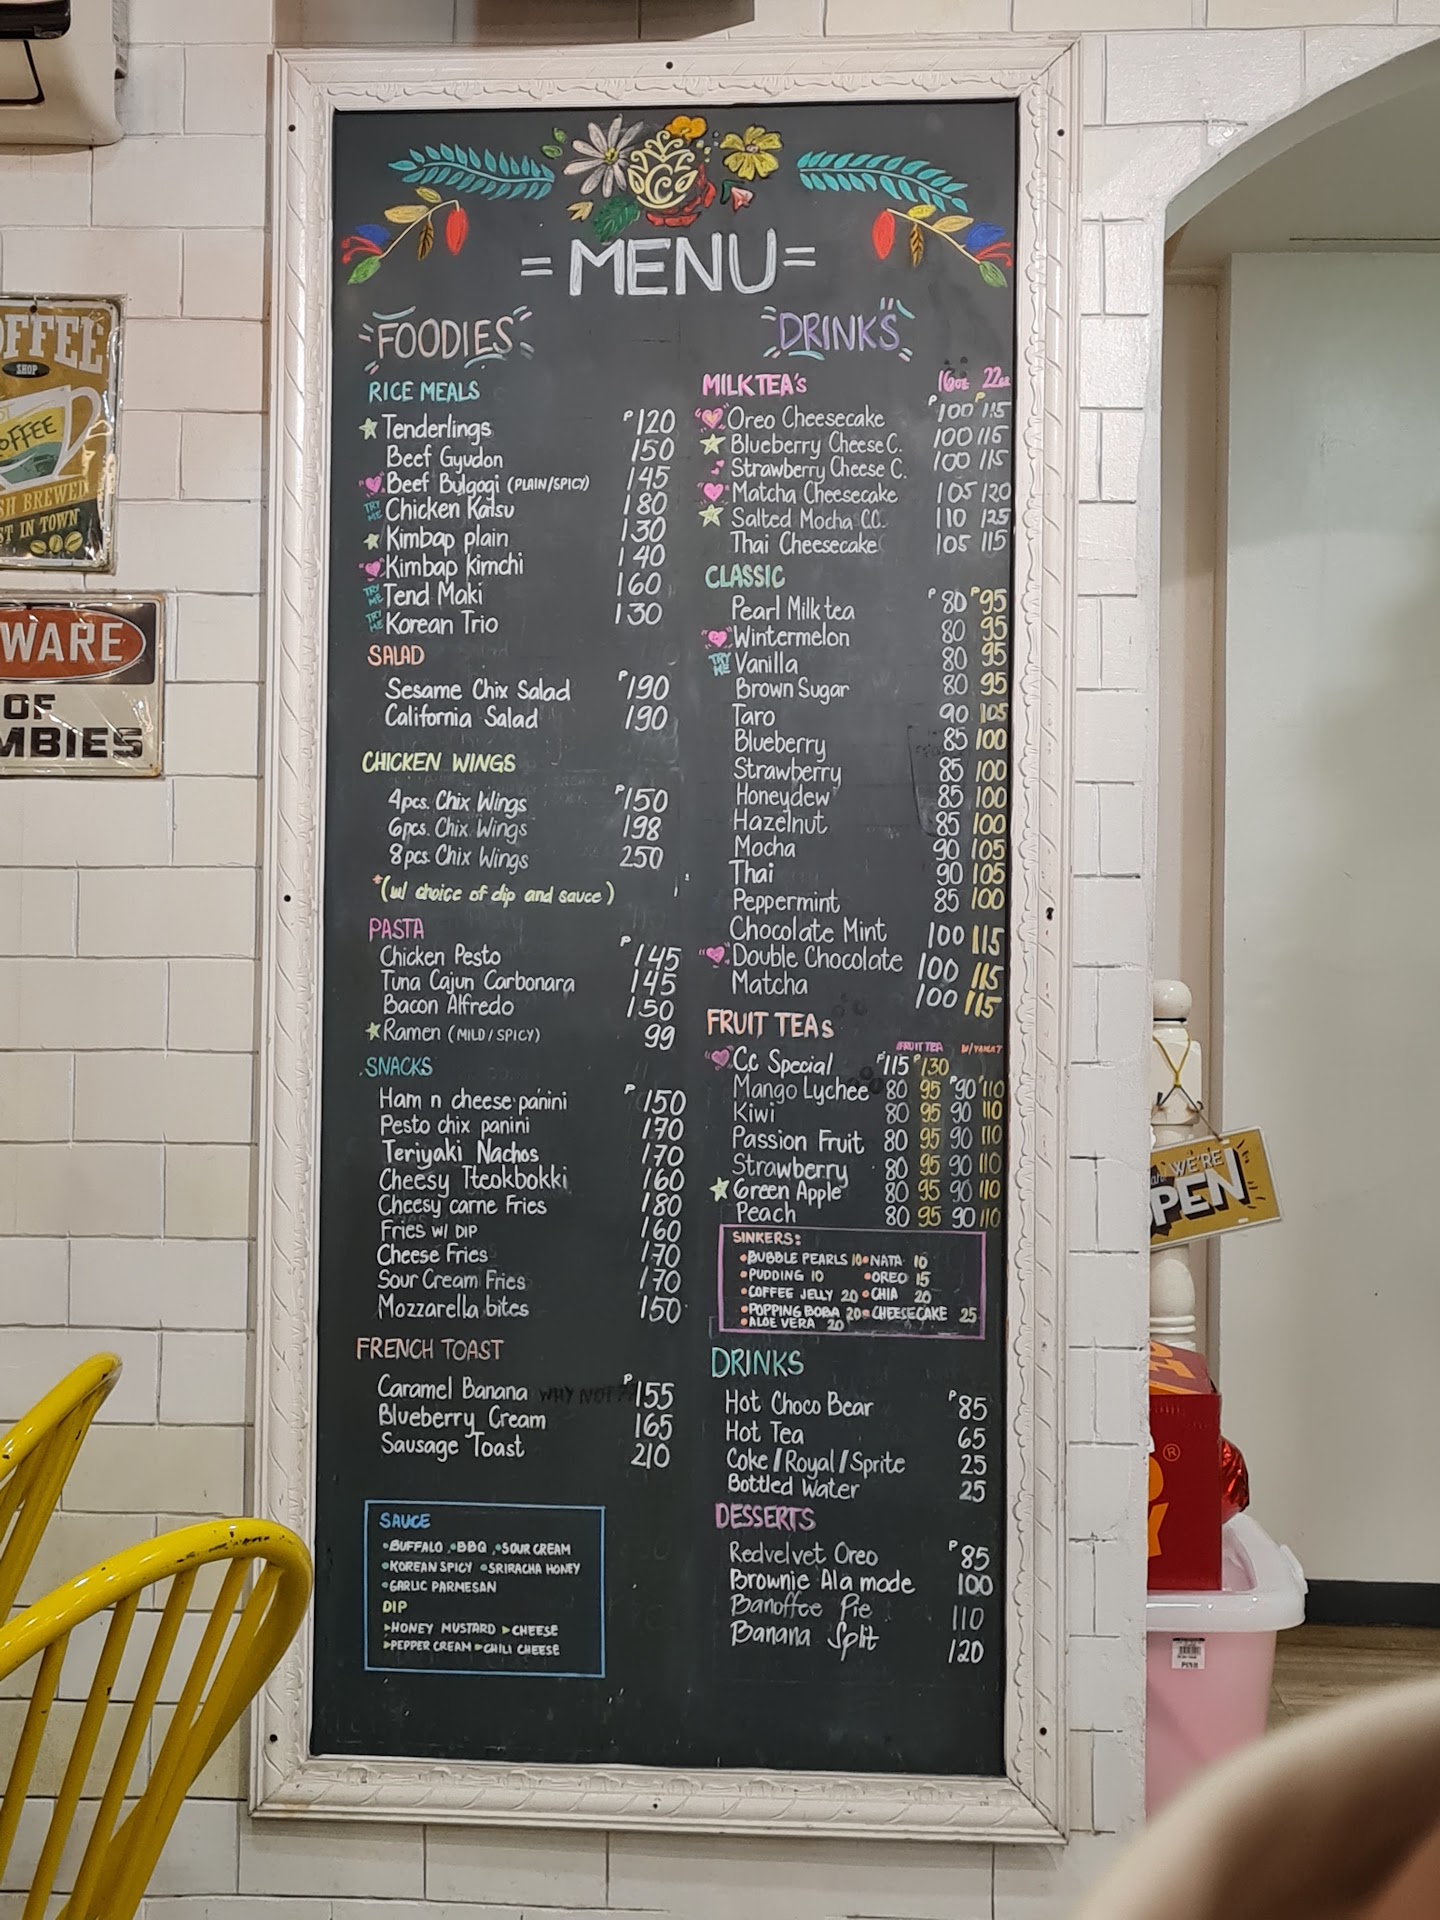 OFFEE
SHOP
OFFEE
SH BREWED
ST IN TOWN
WARE
OF
MBIES
C
=MENU=
FOODIES
RICE MEALS
Tenderlings ₱120
Beef Gyudon 150
Beef Bulgogi (PLAIN/SPICY) 145
TRY ME Chicken Katsu 180
Kimbap plain 130
Kimbap kimchi 140
TRY ME Tend Maki 160
TRY ME Korean Trio 130
SALAD
Sesame Chix Salad ₱190
California Salad 190
CHICKEN WINGS
4pcs. Chix Wings ₱150
6pcs. Chix Wings 198
8pcs. Chix Wings 250
*(w/ choice of dip and sauce)
PASTA
Chicken Pesto ₱145
Tuna Cajun Carbonara 145
Bacon Alfredo 150
Ramen (MILD/SPICY) 99
SNACKS
Ham n cheese panini ₱150
Pesto chix panini 170
Teriyaki Nachos 170
Cheesy Tteokbokki 160
Cheesy carne Fries 180
Fries w/ DIP 160
Cheese Fries 170
Sour Cream Fries 170
Mozzarella bites 150
FRENCH TOAST
Caramel Banana WHY NOT? ₱155
Blueberry Cream 165
Sausage Toast 210
SAUCE
•BUFFALO •BBQ •SOUR CREAM
•KOREAN SPICY •SRIRACHA HONEY
•GARLIC PARMESAN
DIP
▸HONEY MUSTARD ▸CHEESE
▸PEPPER CREAM ▸CHILI CHEESE
DRINKS
MILKTEA's 16oz 22oz
Oreo Cheesecake ₱100 ₱115
Blueberry Cheese C. 100 115
Strawberry Cheese C. 100 115
Matcha Cheesecake 105 120
Salted Mocha C.C. 110 125
Thai Cheesecake 105 115
CLASSIC
Pearl Milk tea ₱80 ₱95
Wintermelon 80 95
TRY ME Vanilla 80 95
Brown Sugar 80 95
Taro 90 105
Blueberry 85 100
Strawberry 85 100
Honeydew 85 100
Hazelnut 85 100
Mocha 90 105
Thai 90 105
Peppermint 85 100
Chocolate Mint 100 115
Double Chocolate 100 115
Matcha 100 115
FRUIT TEAs
FRUIT TEA W/YAKULT
C.C Special ₱115 ₱130
Mango Lychee 80 95 ₱90 110
Kiwi 80 95 90 110
Passion Fruit 80 95 90 110
Strawberry 80 95 90 110
Green Apple 80 95 90 110
Peach 80 95 90 110
SINKERS:
•BUBBLE PEARLS 10 •NATA 10
•PUDDING 10 •OREO 15
•COFFEE JELLY 20 •CHIA 20
•POPPING BOBA 20 •CHEESECAKE 25
•ALOE VERA 20
DRINKS
Hot Choco Bear ₱85
Hot Tea 65
Coke/Royal/Sprite 25
Bottled Water 25
DESSERTS
Redvelvet Oreo ₱85
Brownie Ala mode 100
Banoffee Pie 110
Banana Split 120
WE'RE
PEN